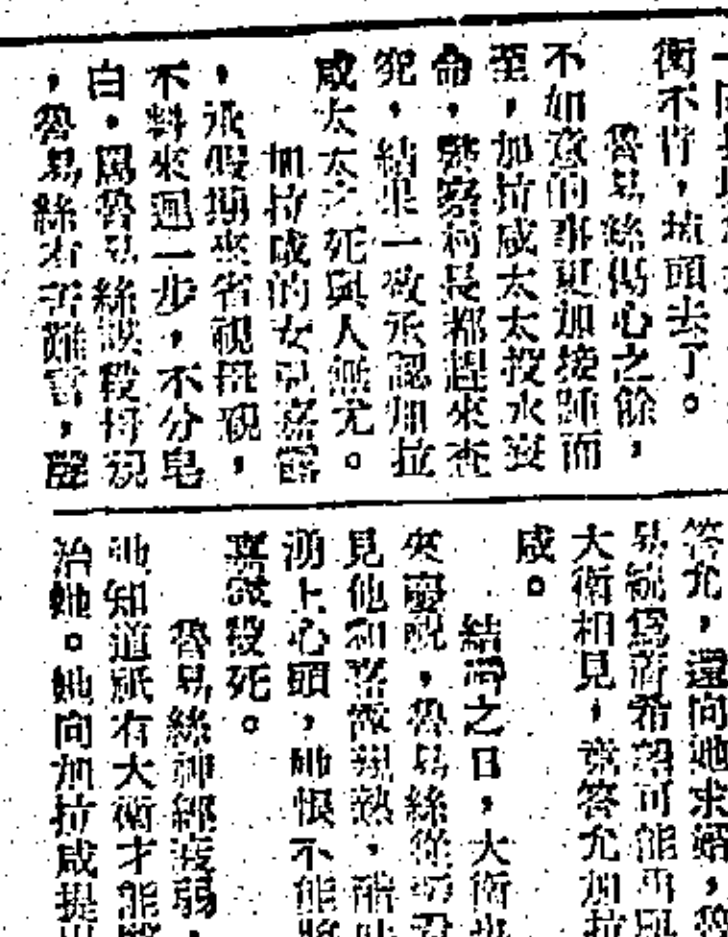 衡不肯，掉頭去了。
魯易絲傷心之餘，
不如意的事更加接踵而
至，加拉咸太太投水喪
命，警察村長都趕來查
究，結果一致承認加拉
咸太太之死與人無尤。
加拉咸的女兒嘉露
，乘假期來省視母親，
不料來遲一步，不分皂
白，罵魯易絲謀殺母親
，魯易絲有苦難言，
答允，還向她求婚，
易絲為著希望可能再與
大衛相見，就答允加拉
咸。
結婚之日，大衛
來慶祝，魯易絲從
見他和嘉露親熱，醋
湧上心頭，她恨不能將
嘉露殺死。
魯易絲神經衰弱，
她知道祇有大衛才能醫
治她。她向加拉咸提